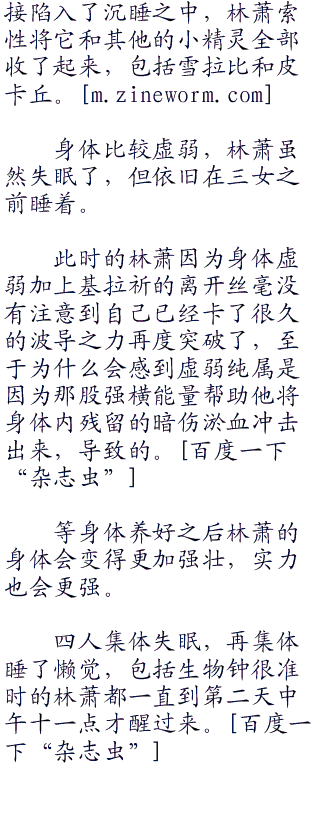 接陷入了沉睡之中，林萧索
性将它和其他的小精灵全部
收了起来，包括雪拉比和皮
卡丘。[m.zineworm.com]
身体比较虚弱，林萧虽
然失眠了，但依旧在三女之
前睡着。
此时的林萧因为身体虚
弱加上基拉祈的离开丝毫没
有注意到自己已经卡了很久
的波导之力再度突破了，至
于为什么会感到虚弱纯属是
因为那股强横能量帮助他将
身体内残留的暗伤淤血冲击
出来，导致的。[百度一下
“杂志虫”]
等身体养好之后林萧的
身体会变得更加强壮，实力
也会更强。
四人集体失眠，再集体
睡了懒觉，包括生物钟很准
时的林萧都一直到第二天中
午十一点才醒过来。[百度一
下“杂志虫”]